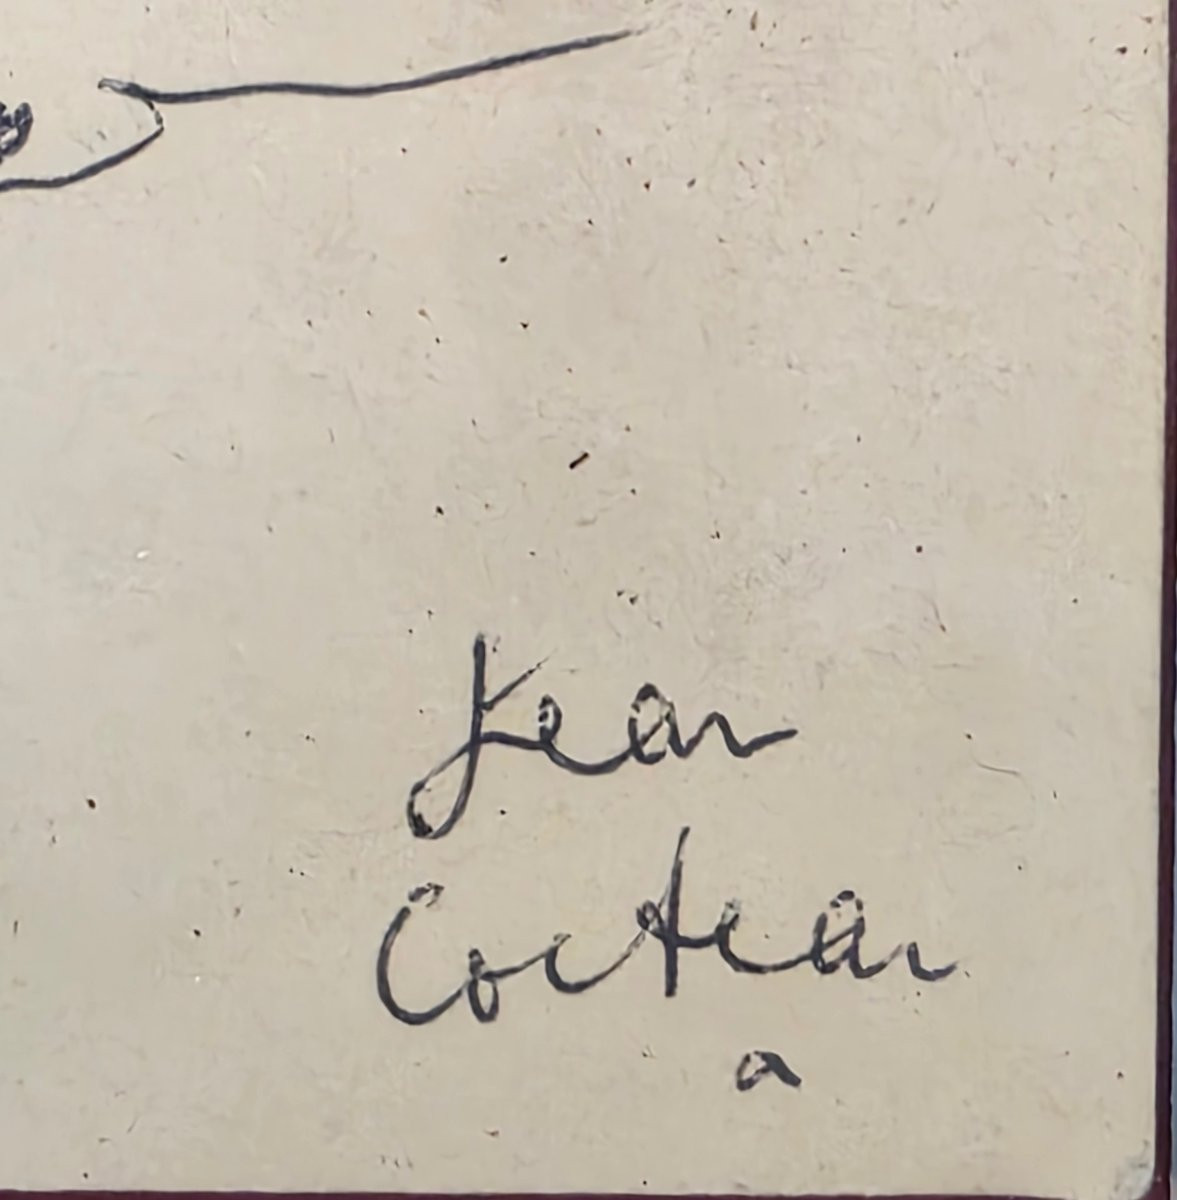 Jean
Cocteau
a